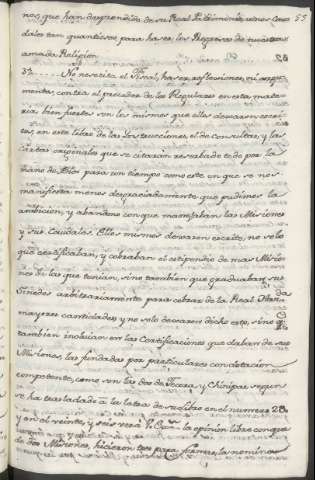 nos, que han desprendido de su Real Patrimonio, unos Cau 55
dales tan quantiosos para hazer los Progresos de nuestra
amada Religion.
3. No necesita el Fiscal, hazer reflexiones, ni argu
mentos, contra el proceder de los Regulares en esta mate
ria, bien fuertes son los mismos que ellos dexaron escri
tos, en este libro de las Instrucciones, el de Consultas, y las
Cartas originales que se citaràn resaltado todo por la
mano de Dios para un tiempo como este en que se nos
manifiesta menos desgraciadamente que pudimos la
ambicion, y abandono con que manejaban las Misiones
y sus Caudales. Ellos mismos dexaron escrito, no solo
que certificaban, y cobraban el estipendio de mas Misio
nes de las que tenian, sino tambien que graduaban sus
Sinodos arbitrariamente para cobrar de la Real Hazda
mayores cantidades y no solo dexaron dicho esto, sino q
tambien incluian en las Certificaciones que daban de sus
Misiones, las fundadas por particulares con dotacion
competente, como son las dos de Forza, y Chinipas segun
se ha trasladado à la letra de su libro en el numero 28
y en el veinte, y seis verà V. Exa. la opinion libre con que
de dos Misiones, hicieron tres para formar la nomina